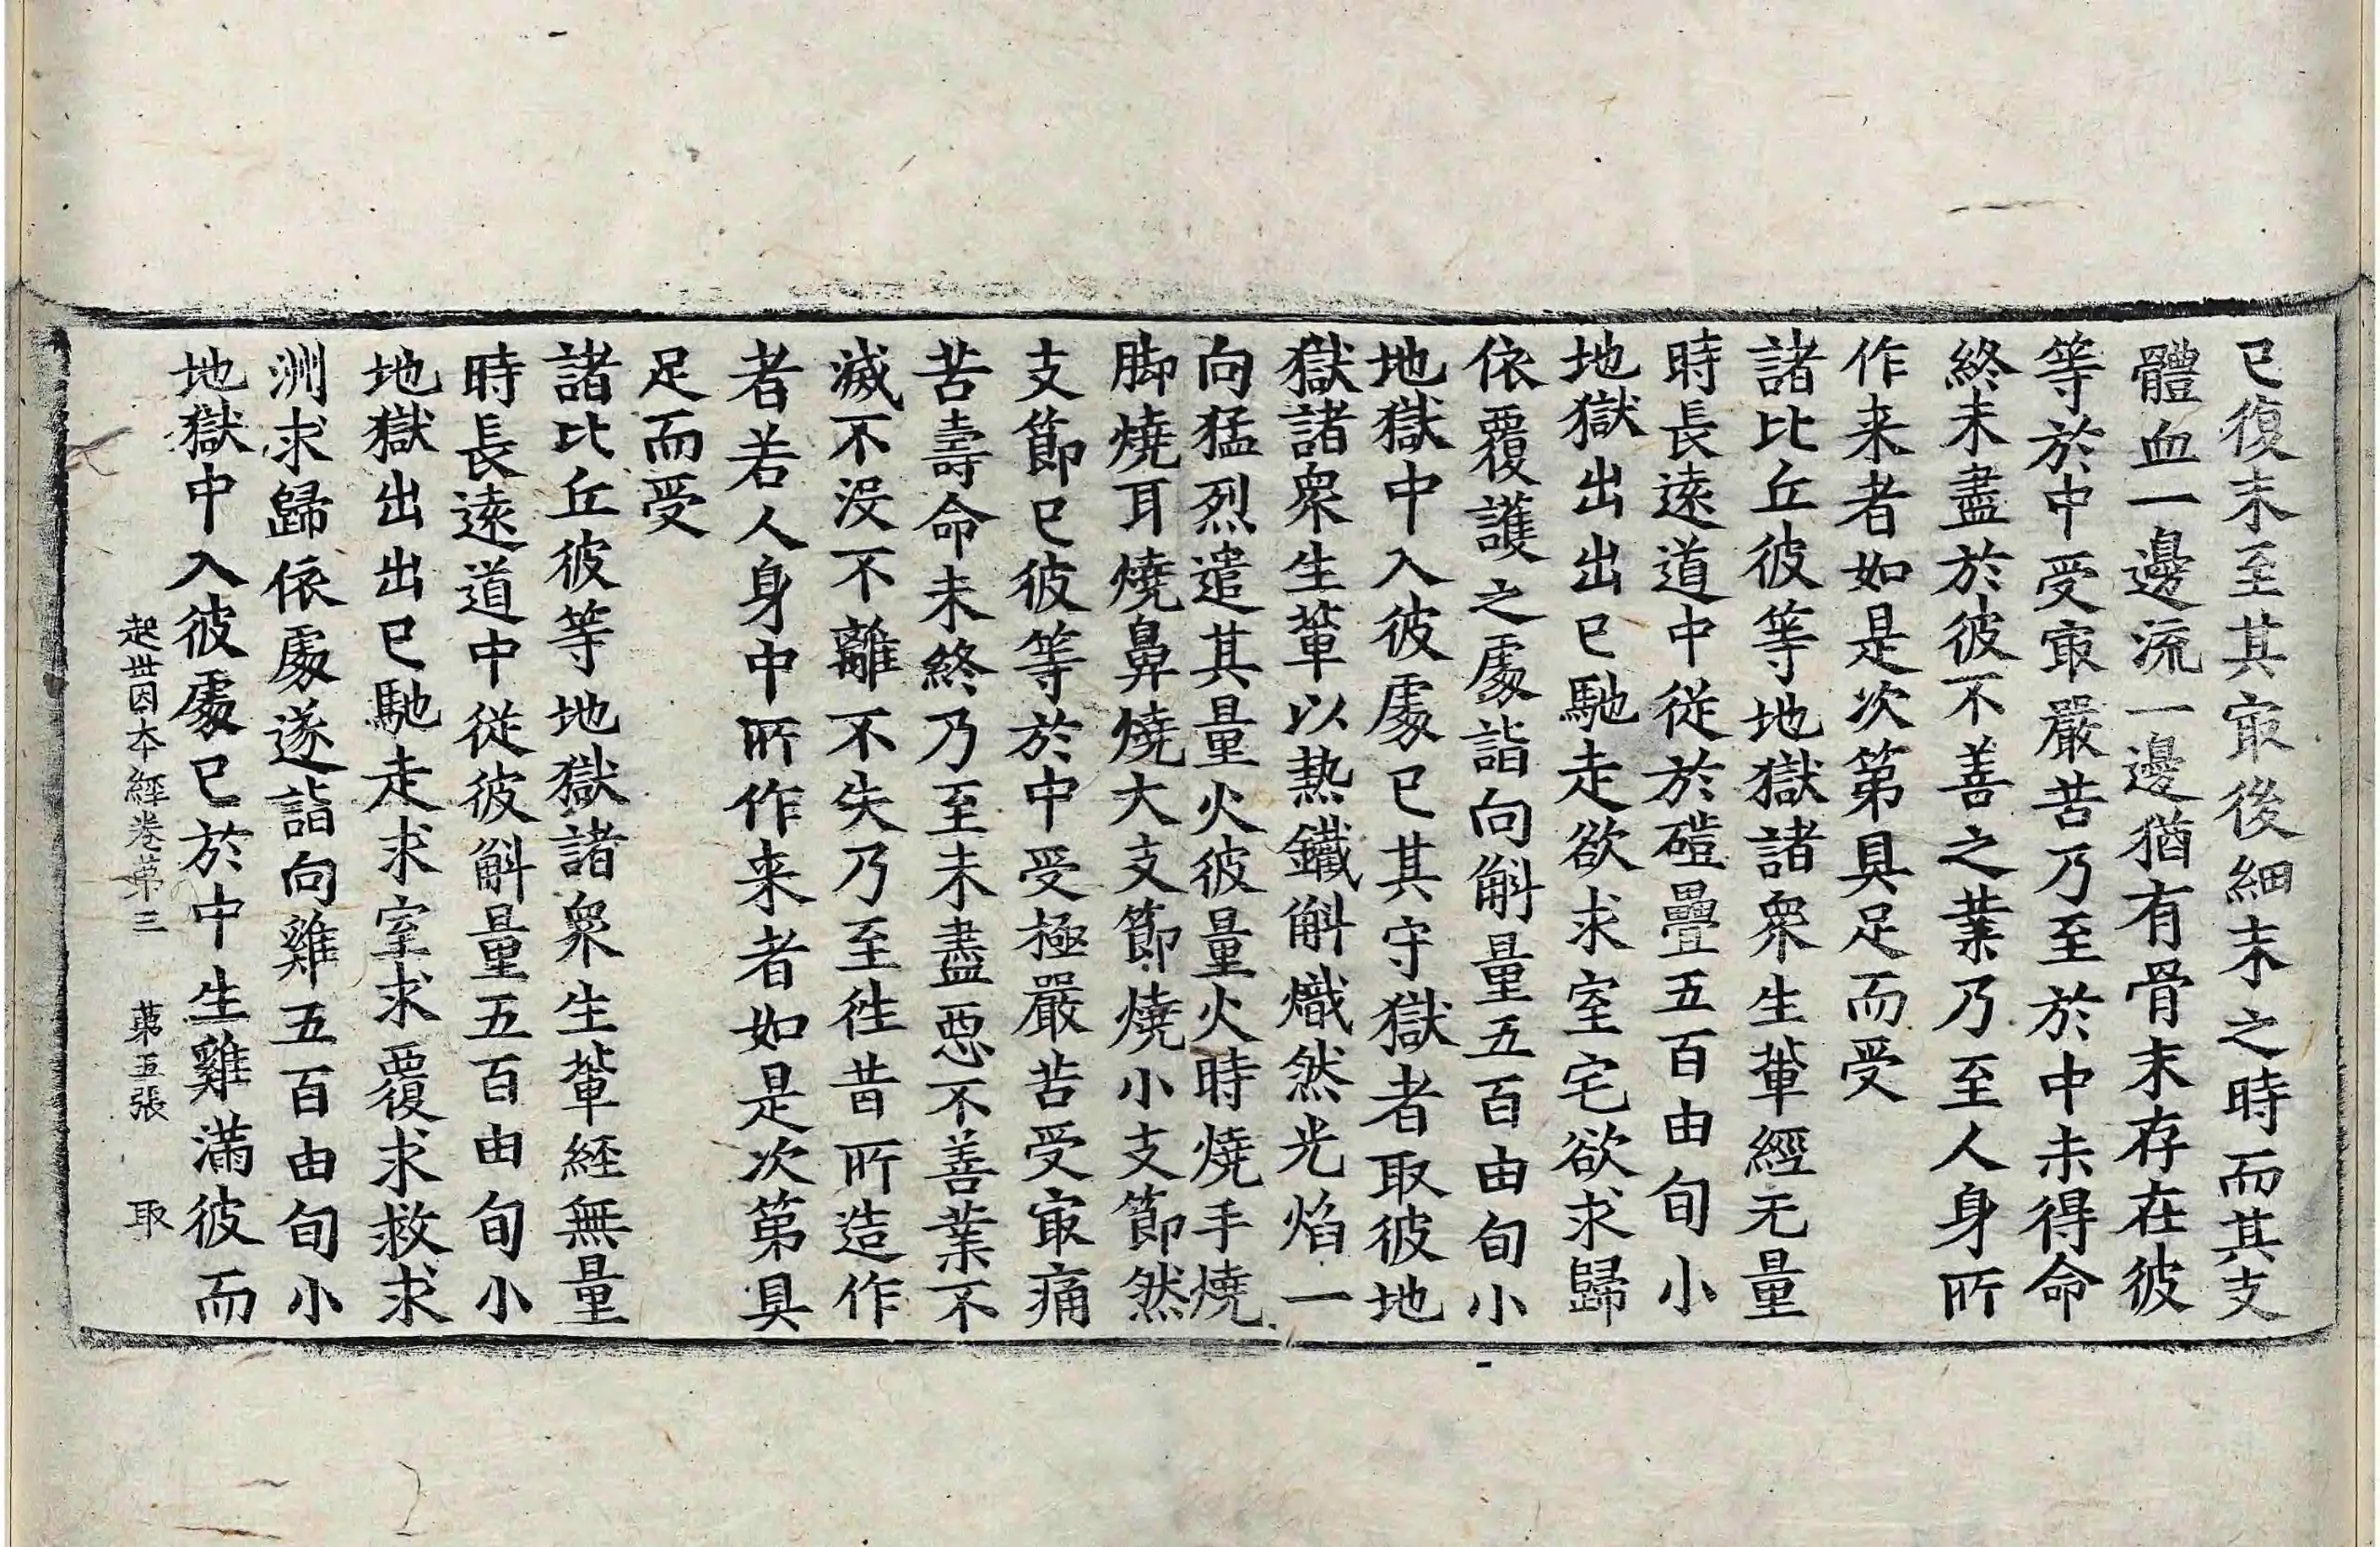 已復末至其㝡後細末之時而其支
體血一邊流一邊猶有骨末存在彼
等於中受㝡嚴苦乃至於中未得命
終未盡於彼不善之業乃至人身所
作来者如是次第具足而受
諸比丘彼等地獄諸衆生輩經无量
時長遠道中從於磑疊五百由旬小
地獄出出已馳走欲求室宅欲求歸
依覆護之處詣向斛量五百由旬小
地獄中入彼處已其守獄者取彼地
獄諸衆生輩以熱鐵斛熾然光焰一
向猛烈遣其量火彼量火時燒手燒
脚燒耳燒鼻燒大支節燒小支節然
支節已彼等於中受極嚴苦受㝡痛
苦壽命未終乃至未盡惡不善業不
滅不没不離不失乃至徃昔所造作
者若人身中所作来者如是次第具
足而受
諸比丘彼等地獄諸衆生輩經無量
時長遠道中從彼斛量五百由旬小
地獄出出已馳走求室求覆求救求
洲求歸依處遂詣向雞五百由旬小
地獄中入彼處已於中生雞滿彼而
起世因本經卷苐三 苐五張 取